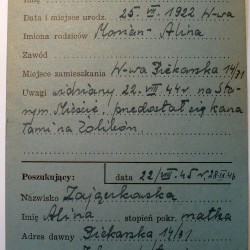 Imię
Data i miejsce urodz. 25. VII. 1922 W-wa
Imiona rodziców Marian - Alina
Zawód
Miejsce zamieszkania W-wa Piekarska 14/31
Uwagi widziany 22. VIII. 44 r. na Sta-
rym Mieście, przedostał się kana
łami na Żoliborz
Poszukujący: data 22/VIII. 45 r.
Nazwisko Zajączkowska
Imię Alina stopień pokr. matka
Adres dawny Piekarska 14/31